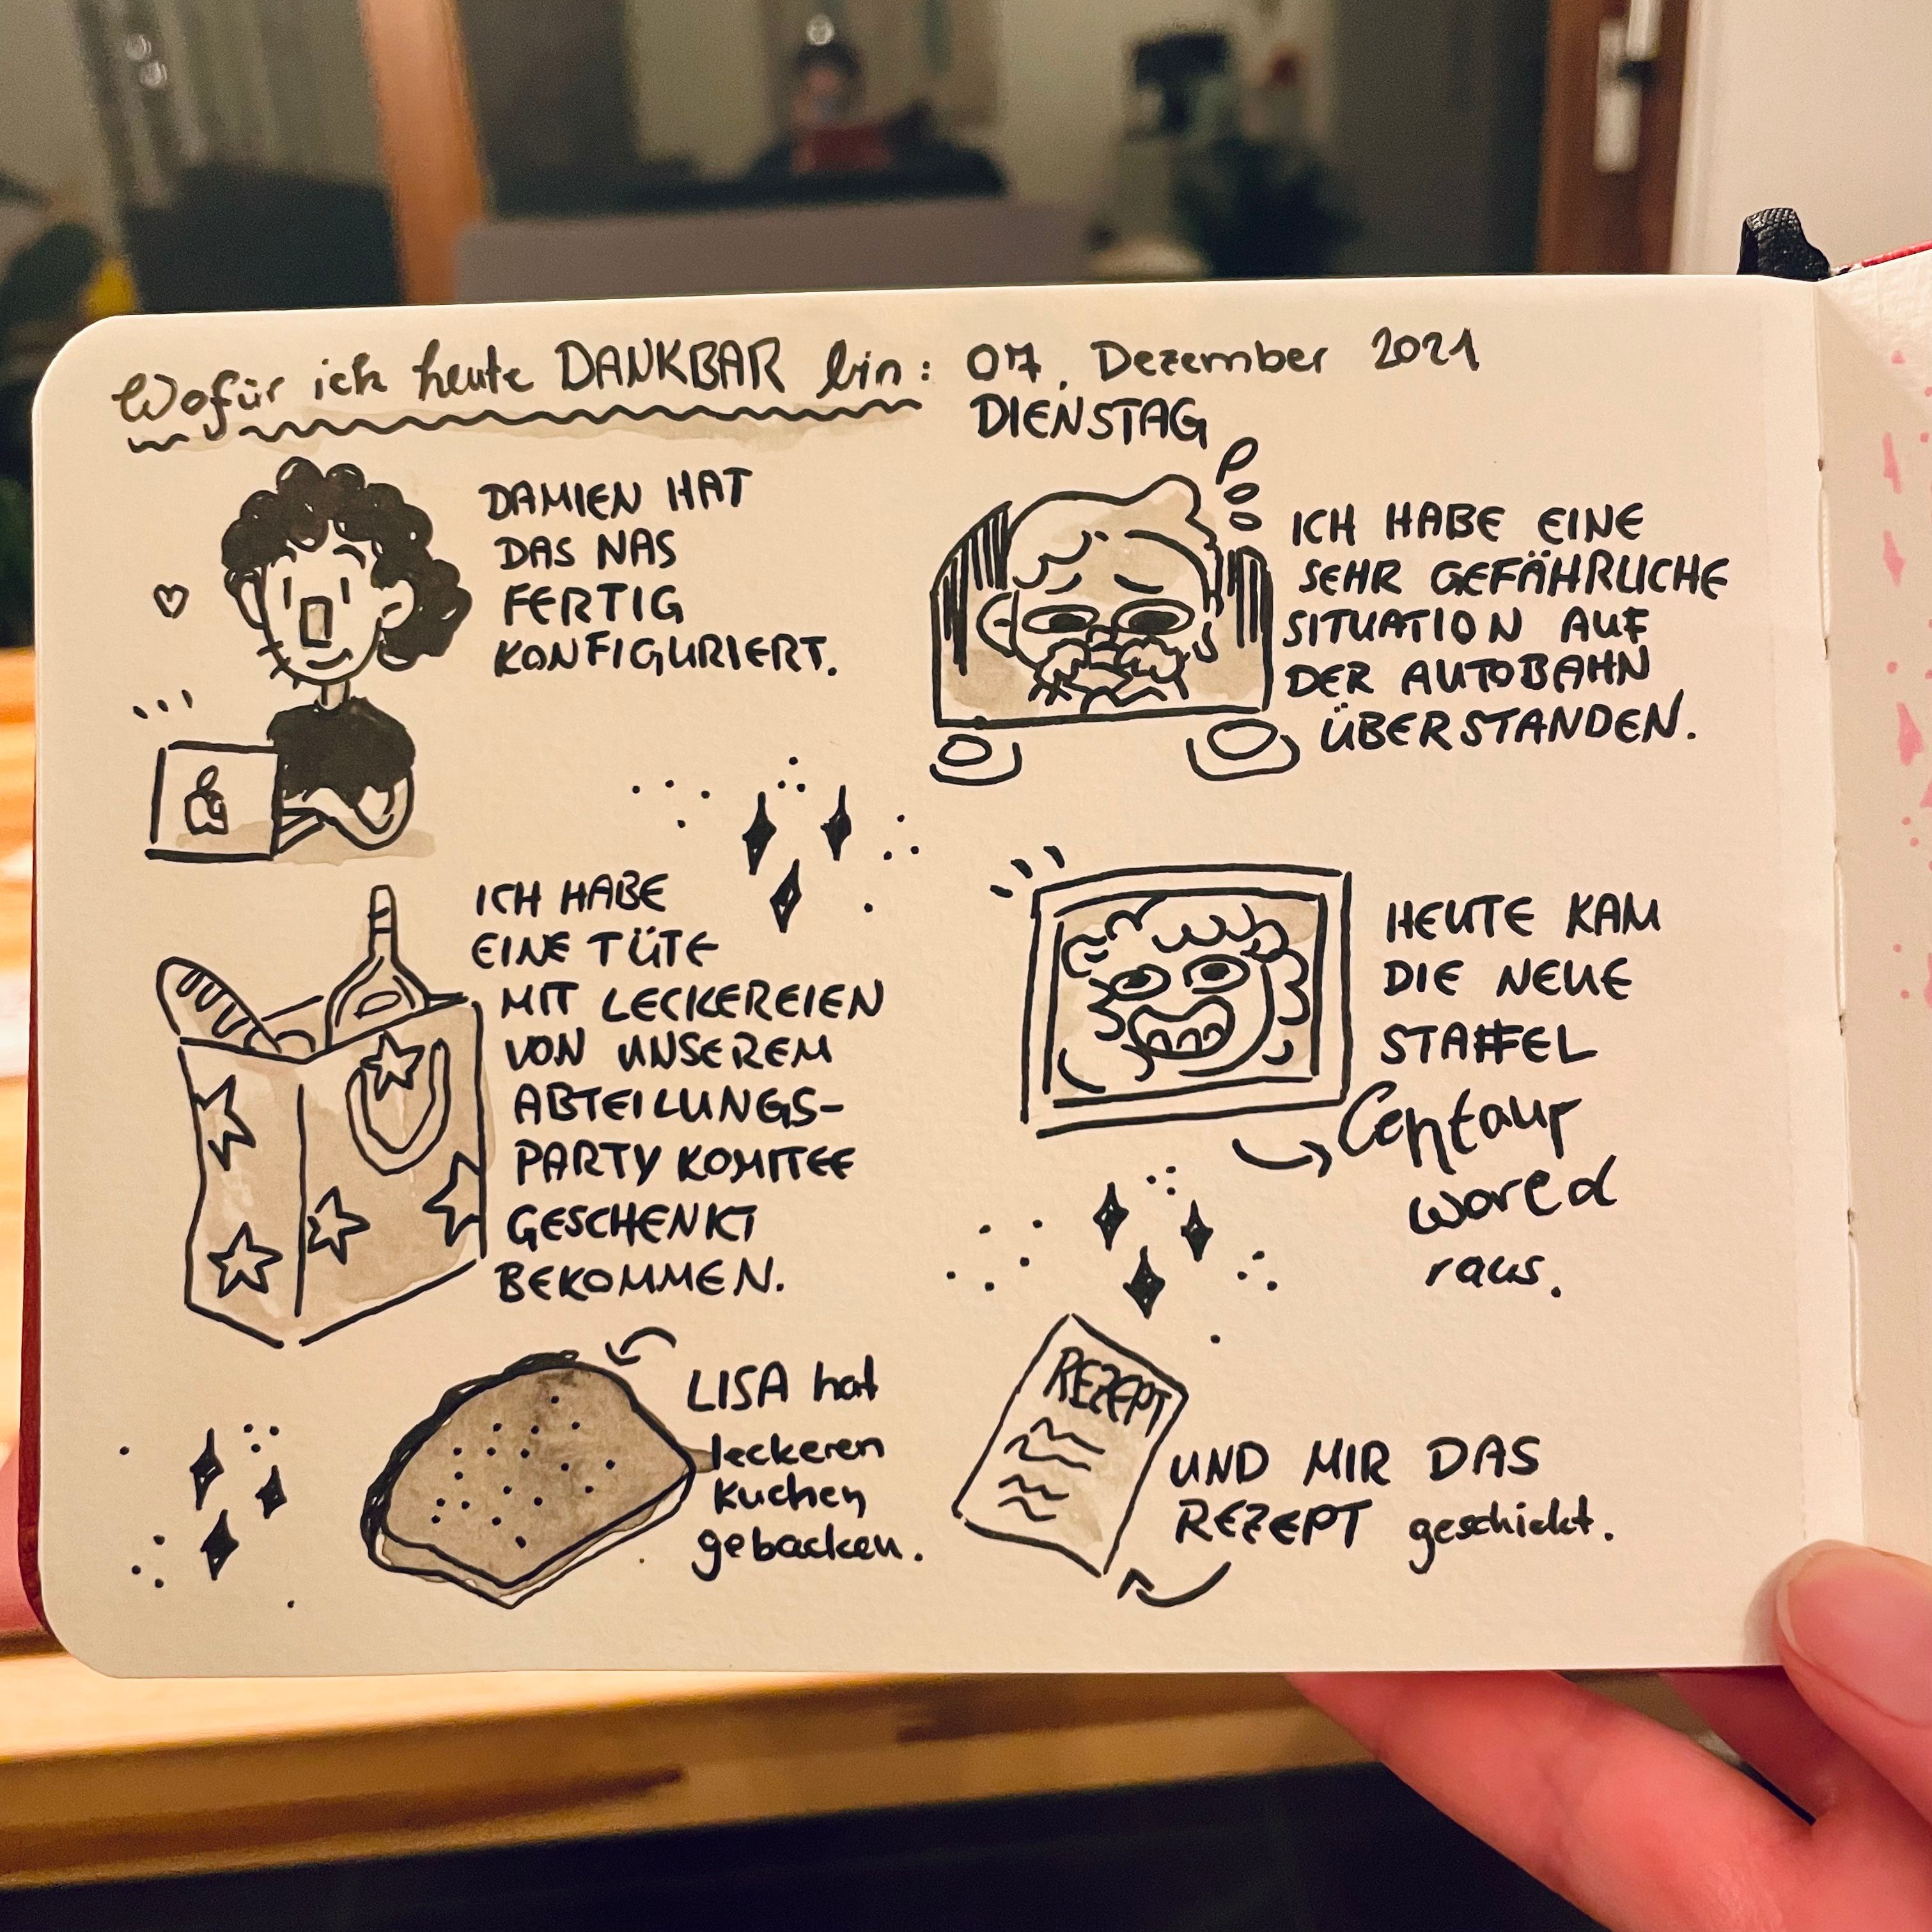 Wofür ich heute DANKBAR bin: 07. Dezember 2021
DIENSTAG
DAMIEN HAT
DAS NAS
FERTIG
KONFIGURIERT.
ICH HABE EINE
SEHR GEFÄHRLICHE
SITUATION AUF
DER AUTOBAHN
ÜBERSTANDEN.
ICH HABE
EINE TÜTE
MIT LECKEREIEN
VON UNSEREM
ABTEILUNGS-
PARTY KOMITEE
GESCHENKT
BEKOMMEN.
HEUTE KAM
DIE NEUE
STAFFEL
Centaur
wored
raus.
LISA hat
leckeren
Kuchen
gebacken.
REZEPT
UND MIR DAS
REZEPT geschickt.